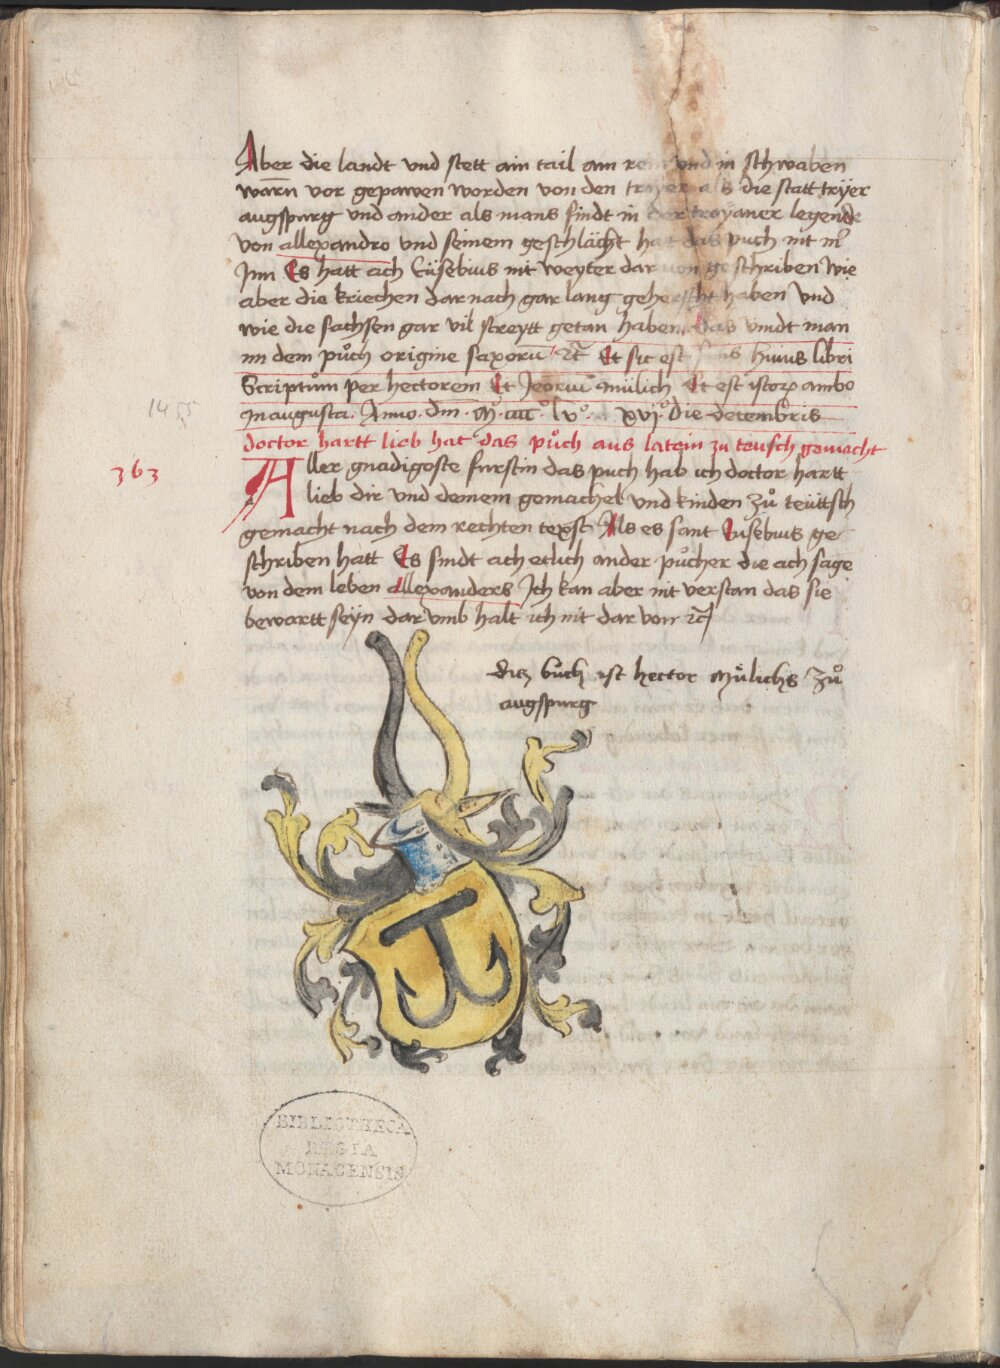 Aber die landt vnd stett ain tail am rein vnd in schwaben
warn̄ vor gepawen worden von den tryer als die statt trÿer
augspurg vnd ander als mans findt in der troyaner legende
von allexandro vnd seinem geschlächt hat das puch nit mer
Jnn Es hatt ach Eüsebius nit weyter dar von geschriben Wie
aber die kriechen dar nach gar lang geherscht haben vnd
wie die sachsen gar vil streytt getan haben Das vindt man
im dem půch origine saxorū ⁊c̄ Et sic est finis huius libri
Scriptům per hectorem Et Jeoriū mülich Et est ambo
In augusta. Anno. dm̄. M°. cccc°. lv°. xvj° die decembris
doctor hartt lieb hat das půch aus latein zu teusch gemacht
363
Aller gnadigoste furstin das puch hab ich doctor hartt
lieb dir vnd deinem gemachel vnd kinden zů teüttsch
gemacht nach dem rechten texst Als es sant Eusebius ge
schriben hatt Es sindt ach etlich ander půcher die ach sage
von dem leben allexanders Ich kan aber nit verstan das sie
bewartt seÿn dar vmb halt ich nit dar von ⁊c̄
1455
diz bůch ist hector Mülichs zů
augspurg
BIBLIOTHECA
REGIA
MONACENSIS